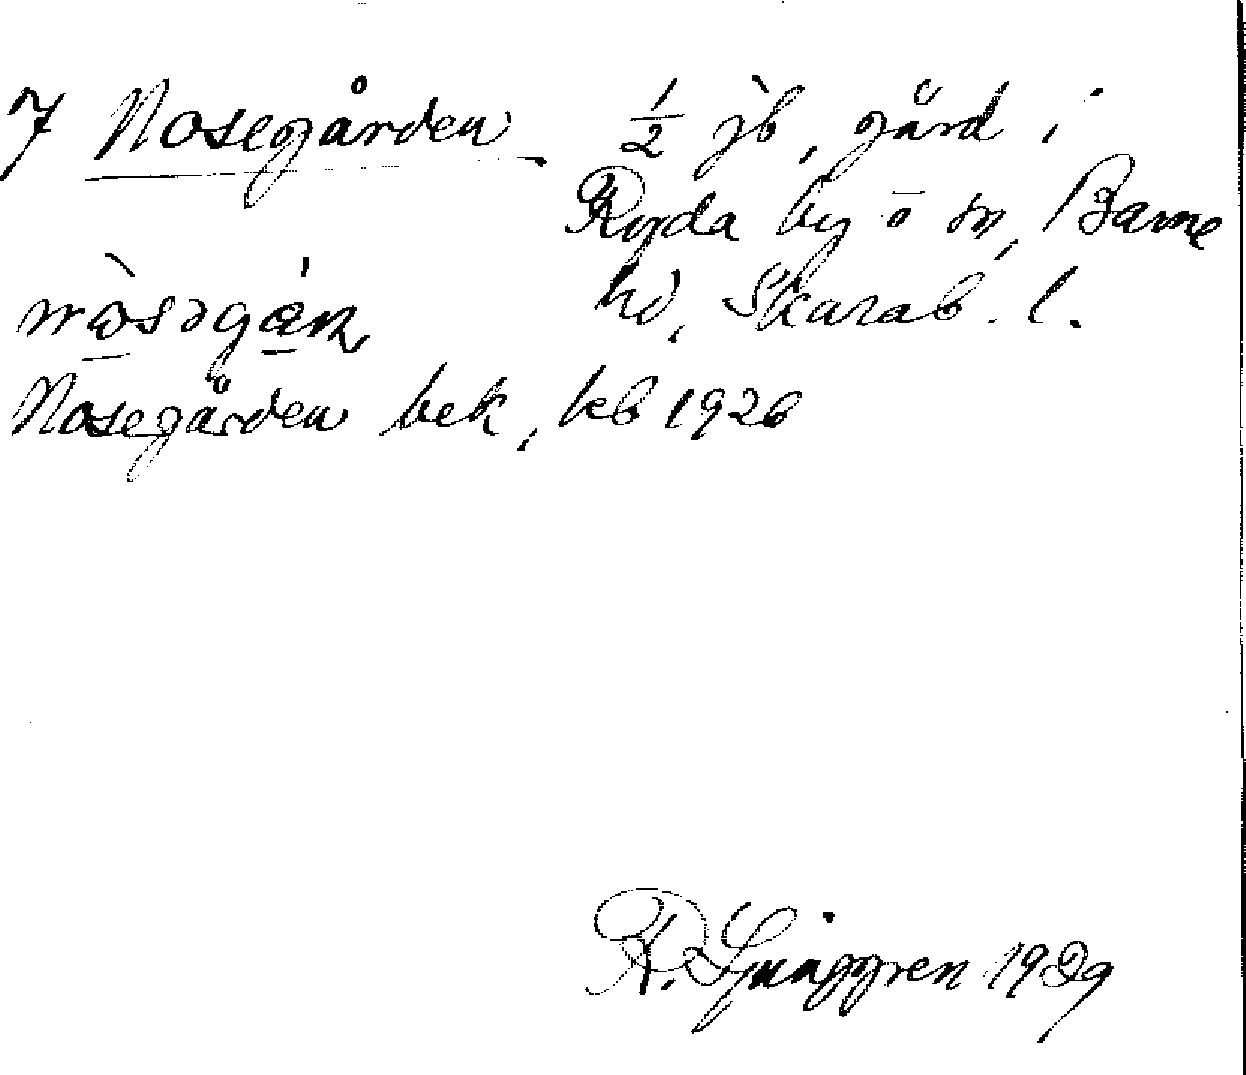 7 Nosegården ½ jb, gård i
Ryda by o sn, Barne
hd, Skarab. l.
nò̱səgá̱ṇ
Nosegården bek, kb 1926
R. Ljunggren 1929